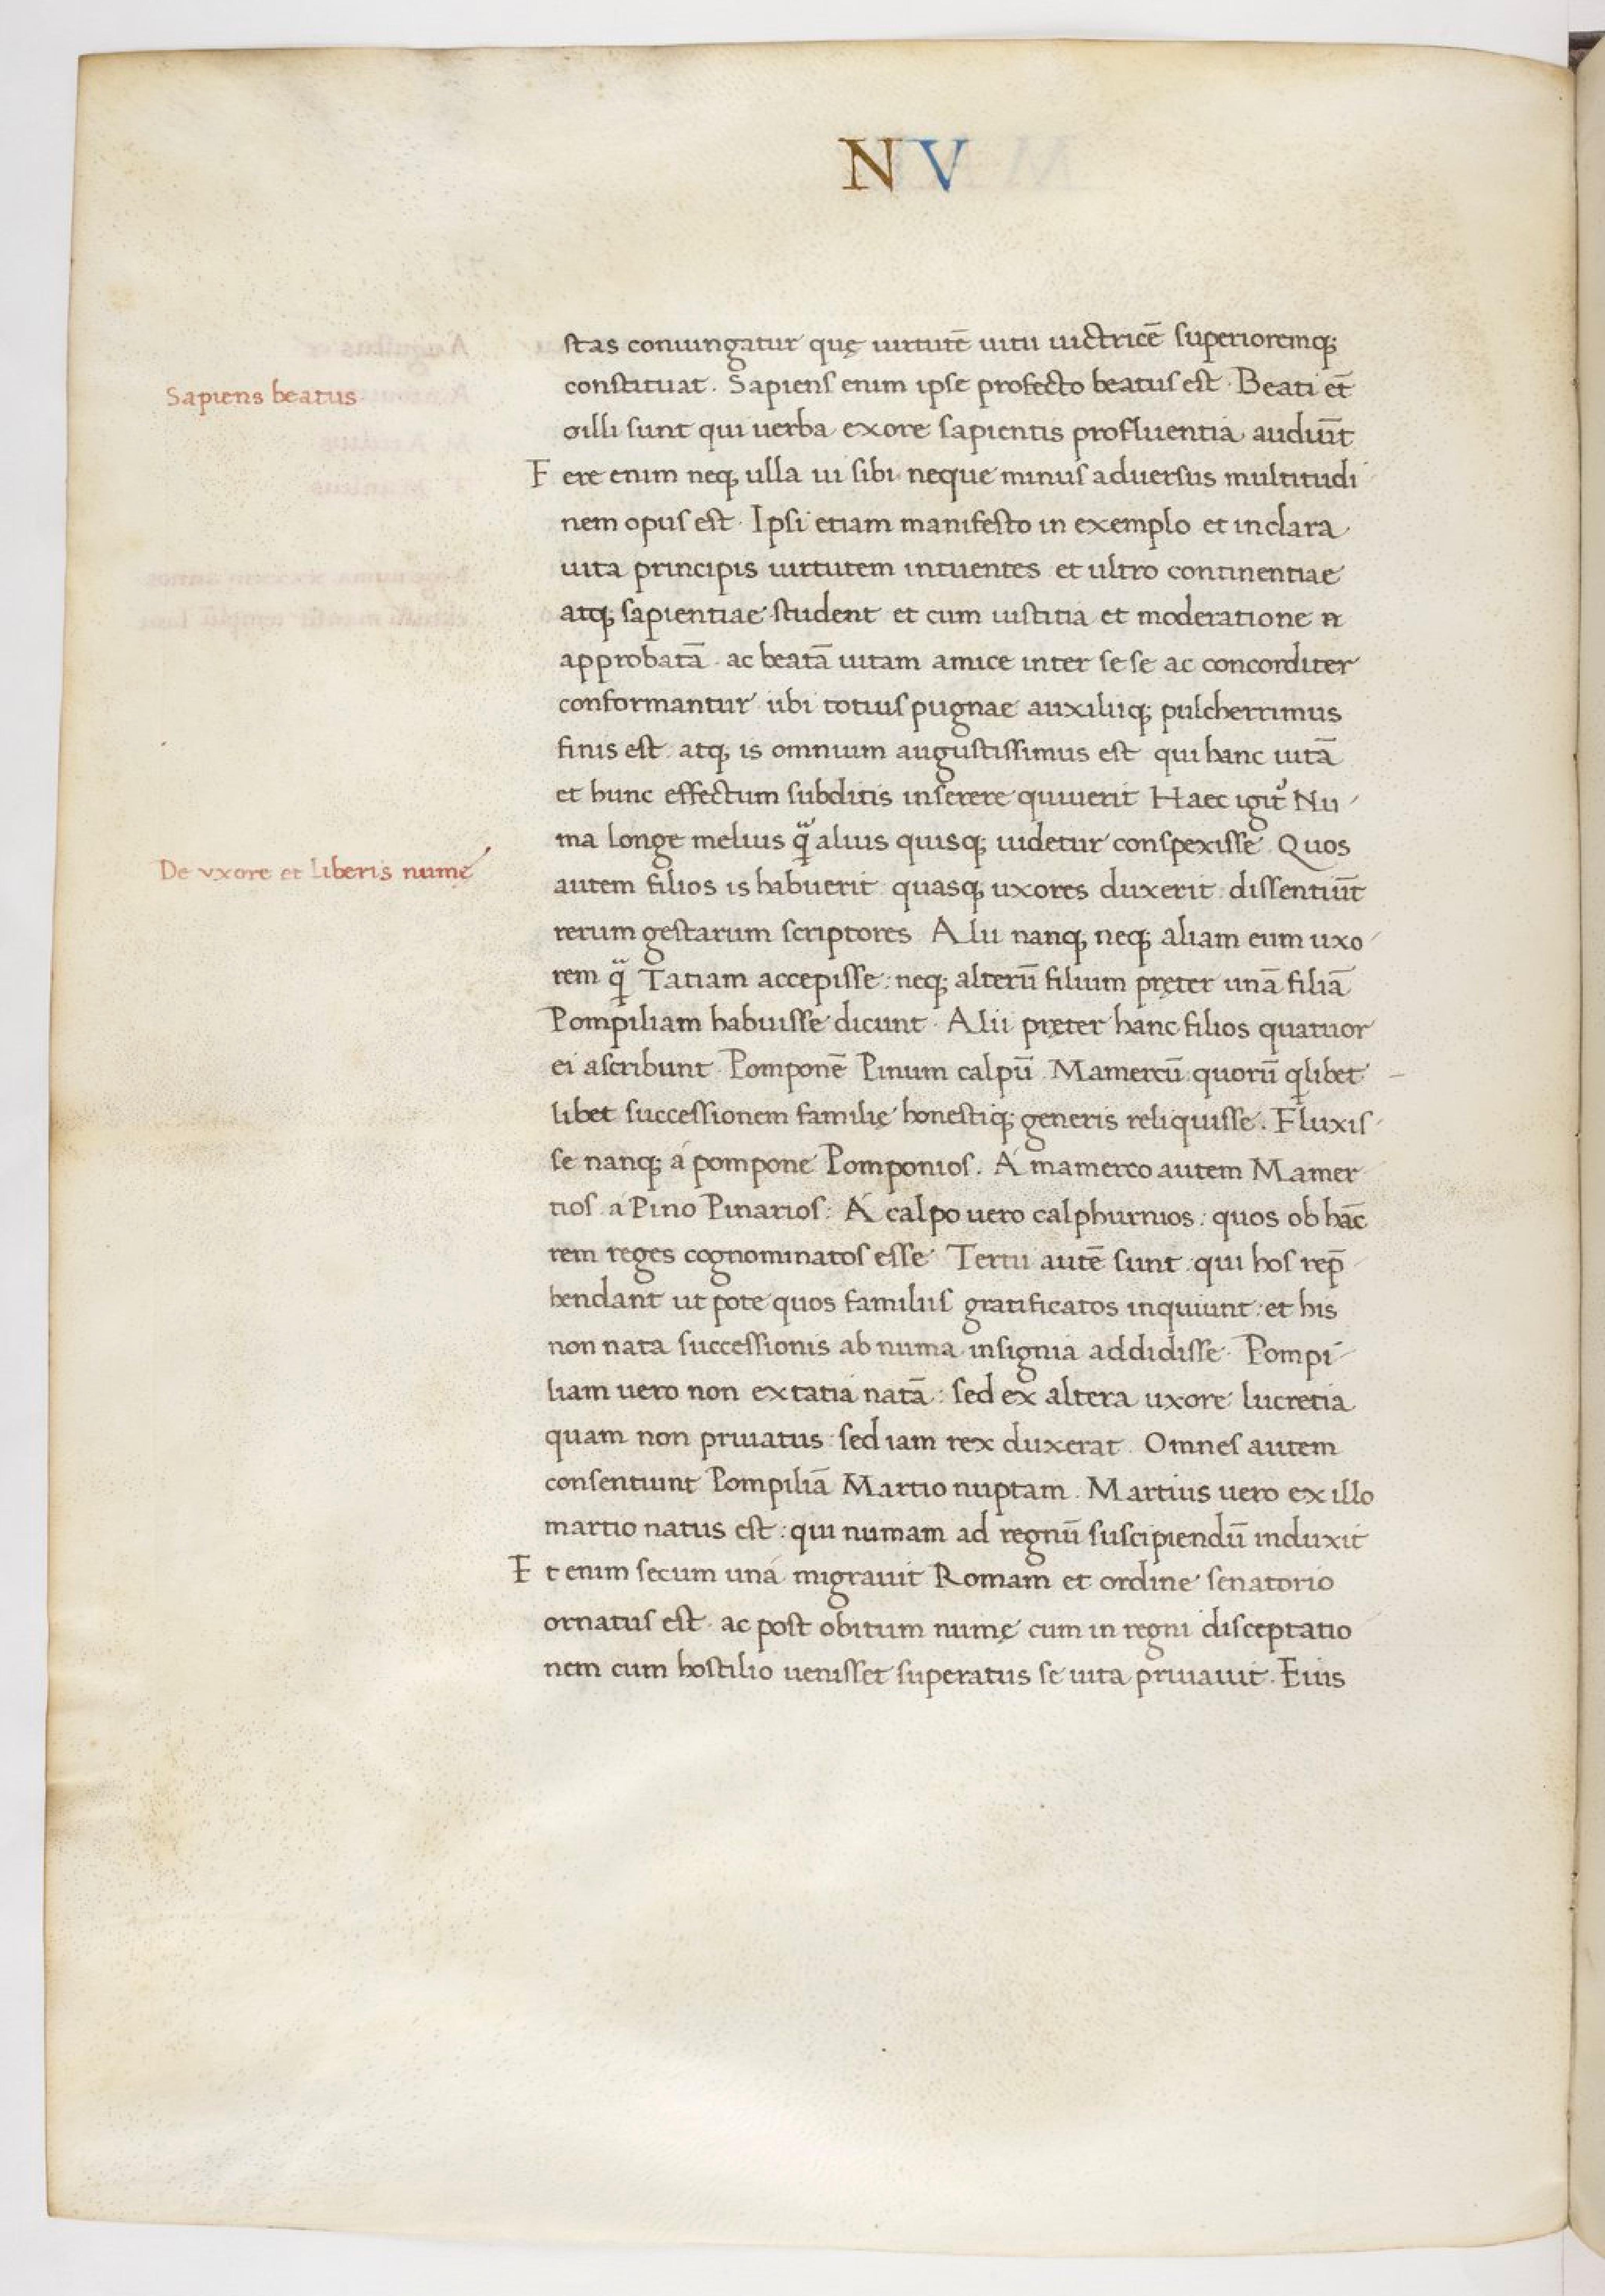 N V
stas coniungatur quę uirtutē uitii uictricē superioremq;
constituat. Sapiens enim ipse profecto beatus est. Beati et̄
Sapiens beatus
illi sunt qui uerba exore sapientis profluentia audiūt
Fere enim neq; ulla ui sibi neque minus aduersus multitudi
nem opus est. Ipsi etiam manifesto in exemplo et in clara
uita principis uirtutem intuentes et ultro continentiae
atq; sapientiae student et cum iustitia et moderatione
approbatā ac beatā uitam amice inter se se ac concorditer
conformantur ubi totius pugnae auxiliiq; pulcherrimus
finis est atq; is omnium augustissimus est qui hanc uitā
et hunc effectum subditis inserere quiuerit Haec igit᷑ Nu
ma longe melius q̄ alius quisq; uidetur conspexisse. Quos
De vxore et liberis numę
autem filios is habuerit quasq; uxores duxerit dissentiūt
rerum gestarum scriptores Alii nanq; neq; aliam eum uxo
rem q̄ Tatiam accepisse: neq; alterū filium pręter unā filiā
Pompiliam habuisse dicunt. Alii pręter hanc filios quatuor
ei ascribunt Pomponē Pinum calpū Mamercū quorū qlibet
libet successionem familię honestiq; generis reliquisse. Fluxis
se nanq; á pompone Pomponios. Á mamerco autem Mamer
tios a Pino Pinarios: Á calpo uero calphurnios: quos ob hāc
rem reges cognominatos esse Tertii autē sunt qui hos rep̄
hendant ut pote quos familiis gratificatos inquiunt: et his
non nata successionis ab numa insignia addidisse. Pompi
liam uero non ex tatia natā: sed ex altera uxore lucretia
quam non priuatus sed iam rex duxerat. Omnes autem
consentiunt Pompiliā Martio nuptam. Martius uero ex illo
martio natus est: qui numam ad regnū suscipiendū induxit
Et enim secum uná migrauit Romam et ordine senatorio
ornatus est ac post obitum numę cum in regni disceptatio
nem cum hostilio uenisset superatus se uita priuauit. Eius